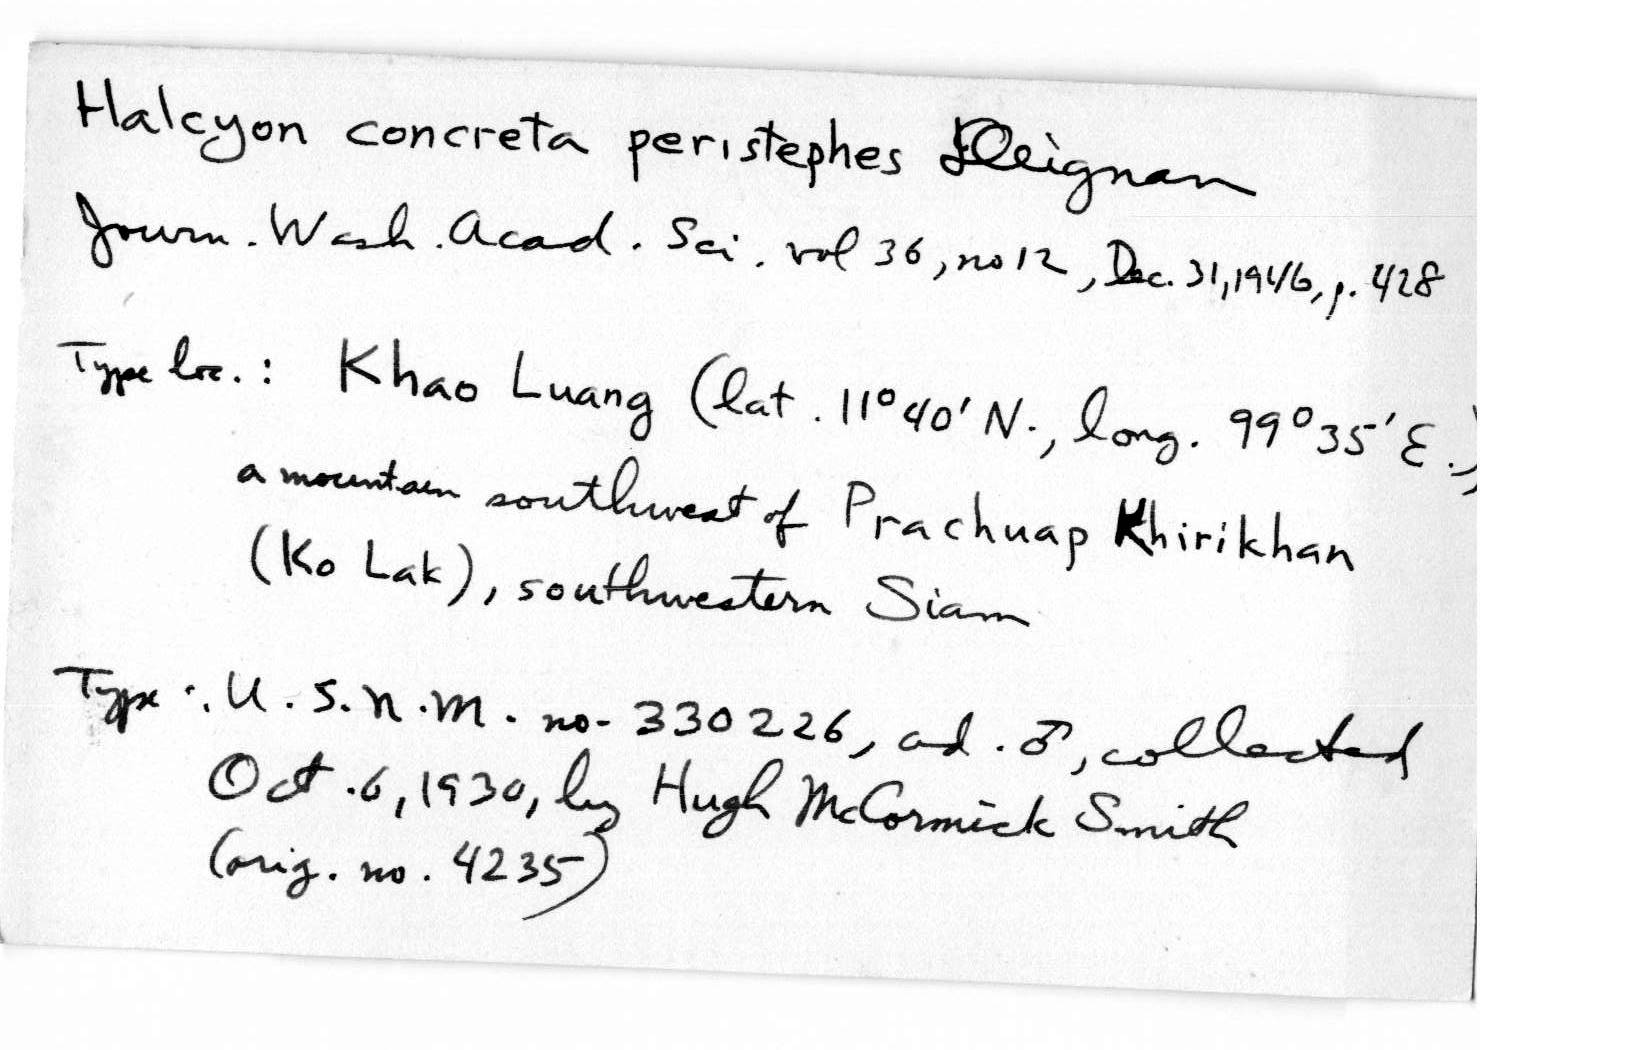 Halcyon concreta peristephes Deignan
Journ. Wash. Acad. Sci. vol 36, no 12, Dec. 31, 1946, p. 428
Type loc.: Khao Luang (lat. 11°40' N., long. 99°35' E.),
a mountain southwest of Prachuap Khirikhan
(Ko Lak), southwestern Siam
Type: U.S.N.M. no. 330226, ad. ♂, collected
Oct. 6, 1930, by Hugh McCormick Smith
(orig. no. 4235)